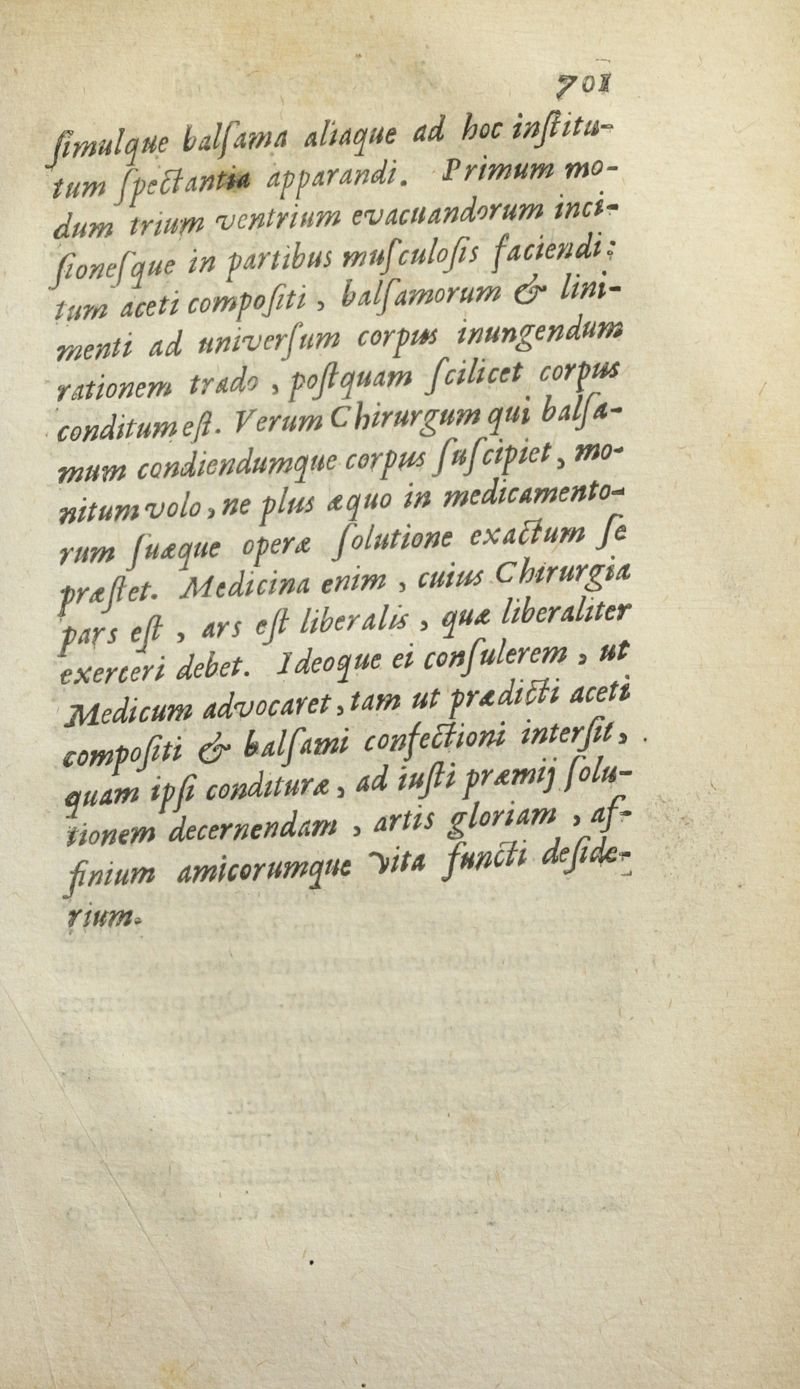 701
ſimulque balſama aliaque ad hoc inſtitu-
tum ſpectantia apparandi. Primum mo-
dum trium ventrium evacuandorum inci-
ſioneſque in partibus muſculoſis faciendi;
tum aceti compoſiti, balſamorum & lini-
menti ad univerſum corpus inungendum
rationem trado, poſtquam ſcilicet corpus
conditum eſt. Verum Chirurgum qui balſa-
mum condiendumque corpus ſuſcipiet, mo-
nitum volo, ne plus æquo in medicamento-
rum ſuæque operæ ſolutione exactum ſe
præſtet. Medicina enim, cuius Chirurgia
pars eſt, ars eſt liberalis, quæ liberaliter
exerceri debet. Ideoque ei conſulerem, ut
Medicum advocaret, tam ut prædicti aceti
compoſiti & balſami confectioni interſit,
quam ipſi condituræ, ad iuſti præmij ſolu-
tionem decernendam, artis gloriam, af-
finium amicorumque vita functi deſide-
rium.